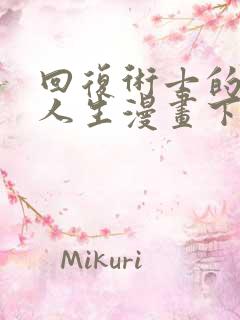 回復術士的
人生漫畫下
Mikuri